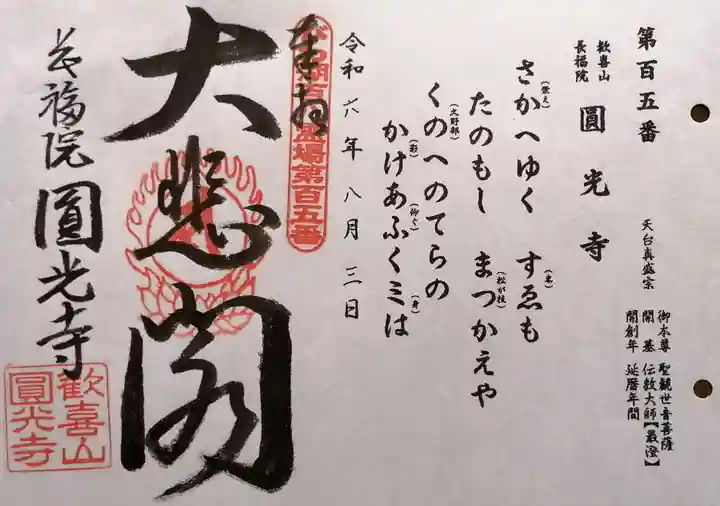 第百五番
天台真盛宗
御本尊 聖観世音菩薩
開基 伝教大師【最澄】
開創年 延暦年間
歓喜山
長福院
圓光寺
さかへゆく すゑも
(栄え) (末)
たのもし まつかえや
(松が枝)
くのへのてらの
(久野部)
かけあふくミは
(影) (仰ぐ) (身)
令和六年八月三日
奉拝
びわ湖百八霊場第百五番
大悲閣
長福院 圓光寺
歓喜山
圓光寺